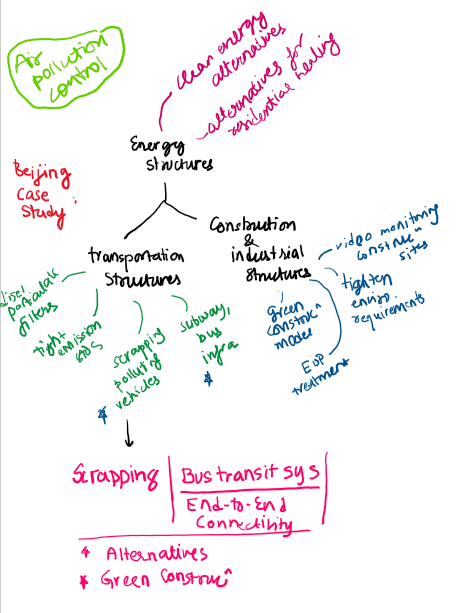 Air
pollution
control
clean energy
alternatives
alternatives for
residential heating
Energy
Structures
Beijing
Case
Study:
Transportation
Structures
Construction
&
industrial
Structures
diesel
particulate
filters
tight
emission
stds
scrapping
polluting
vehicles
*
subway,
bus
infra
*
green
construcⁿ
modes
EOP
treatment
video monitoring
construcⁿ
sites
tighten
enviro
requirements
Scrapping
Bus transit sys
End-to-End
Connectivity
* Alternatives
* Green Construcⁿ